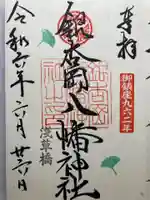 奉拝
御鎮座九六二年
銀杏岡八幡神社
浅草橋
令和六年六月廿六日